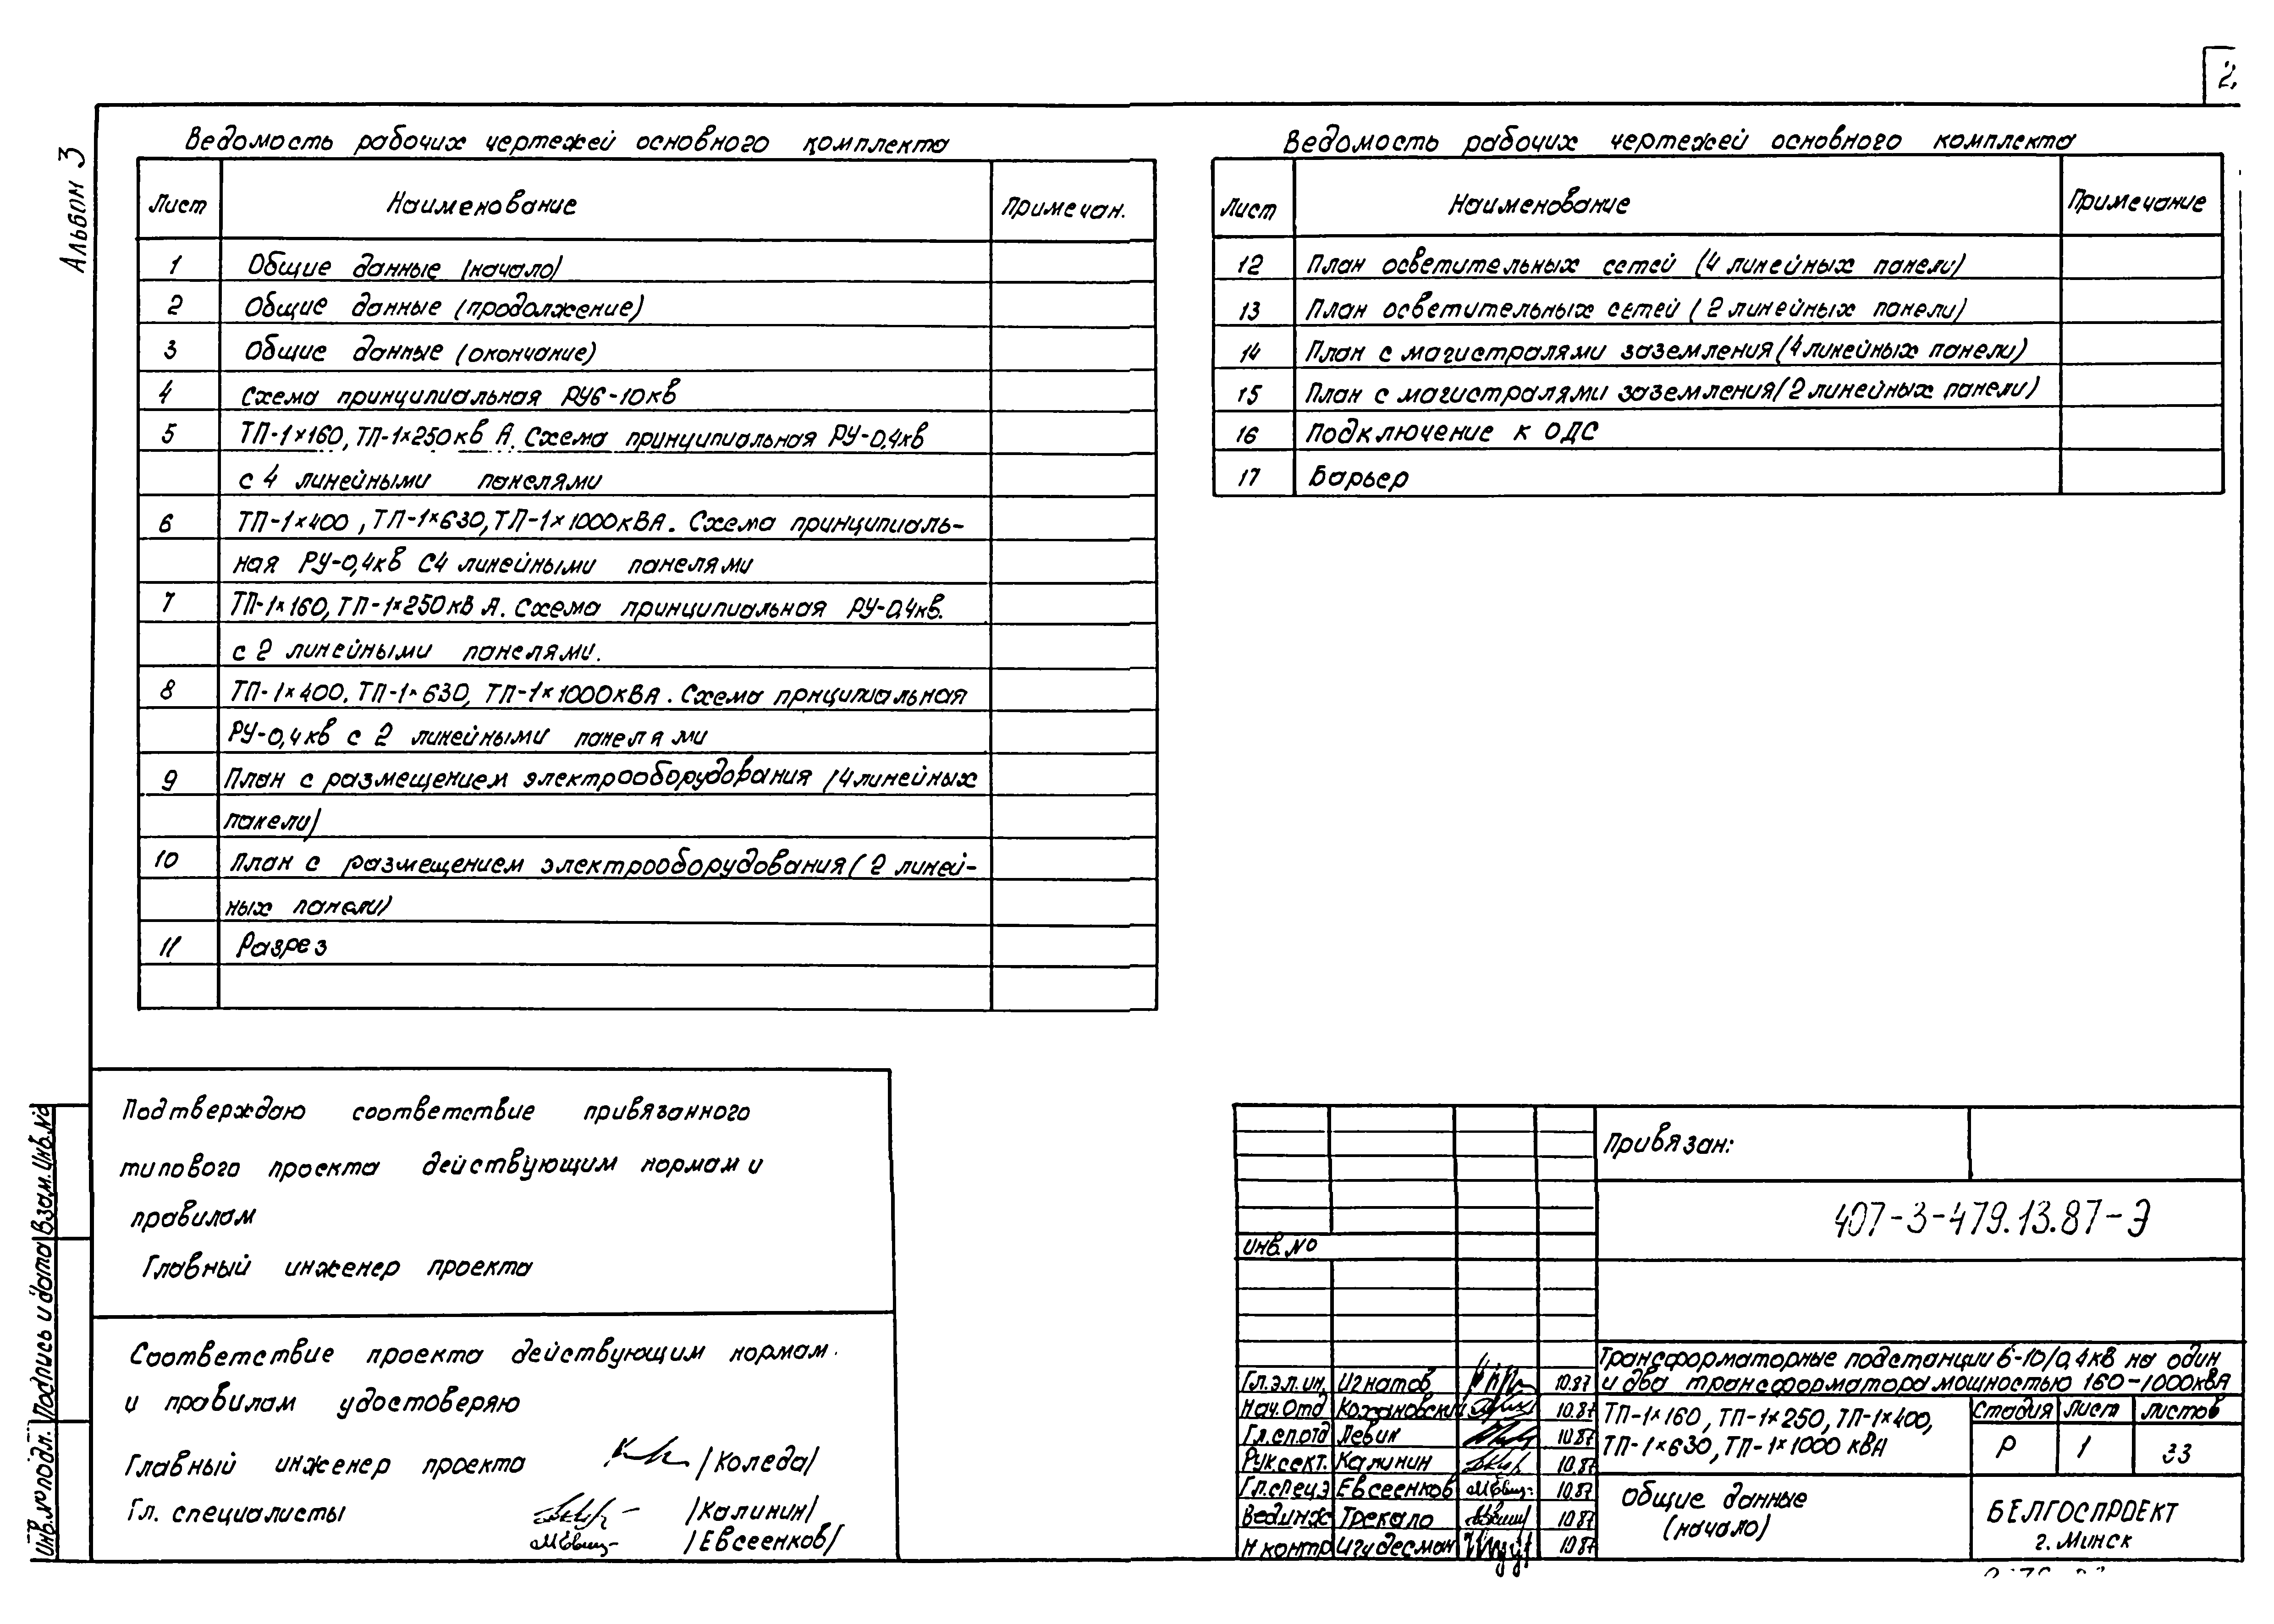 2.
Альбом 3
Ведомость рабочих чертежей основного комплекта
Лист Наименование Примечан.
1 Общие данные (начало)
2 Общие данные (продолжение)
3 Общие данные (окончание)
4 Схема принципиальная РУ6-10кВ
5 ТП-1×160, ТП-1×250кВ А. Схема принципиальная РУ-0,4кВ
с 4 линейными панелями
6 ТП-1×400, ТП-1×630, ТП-1×1000кВА. Схема принципиаль-
ная РУ-0,4кВ с 4 линейными панелями
7 ТП-1×160, ТП-1×250кВ А. Схема принципиальная РУ-0,4кВ.
с 2 линейными панелями.
8 ТП-1×400. ТП-1×630, ТП-1×1000кВА. Схема прнципиальная
РУ-0,4кВ с 2 линейными панелями
9 План с размещением электрооборудования (4 линейных
панели)
10 План с размещением электрооборудования (2 линей-
ных панели)
11 Разрез
Ведомость рабочих чертежей основного комплекта
Лист Наименование Примечание
12 План осветительных сетей (4 линейных панели)
13 План осветительных сетей (2 линейных панели)
14 План с магистралями заземления (4 линейных панели)
15 План с магистралями заземления (2 линейных панели)
16 Подключение к ОДС
17 Барьер
Подтверждаю соответствие привязанного
типового проекта действующим нормам и
правилам
Главный инженер проекта
Соответствие проекта действующим нормам.
и правилам удостоверяю
Главный инженер проекта /Коледа/
Гл. специалисты /Калинин/
/Евсеенков/
Инв.№ подл. Подпись и дата Взам. Инв.№
Привязан:
407-3-479.13.87-Э
Инв.№
Трансформаторные подстанции 6-10/0,4кВ на один
и два трансформатора мощностью 160-1000кВА
Гл.эл.ин. Игнатов 10.87
Нач.отд Кохановский 10.87
Гл.сп.отд Левин 10.87
Рук.сект. Калинин 10.87
Гл.спец.э Евсеенков 10.87
Вед.инж Трекало 10.87
Н контр Игудесман 10.87
ТП-1×160, ТП-1×250, ТП-1×400,
ТП-1×630, ТП-1×1000 кВА
Стадия Лист Листов
Р 1 33
Общие данные
(начало)
БЕЛГОСПРОЕКТ
г. Минск